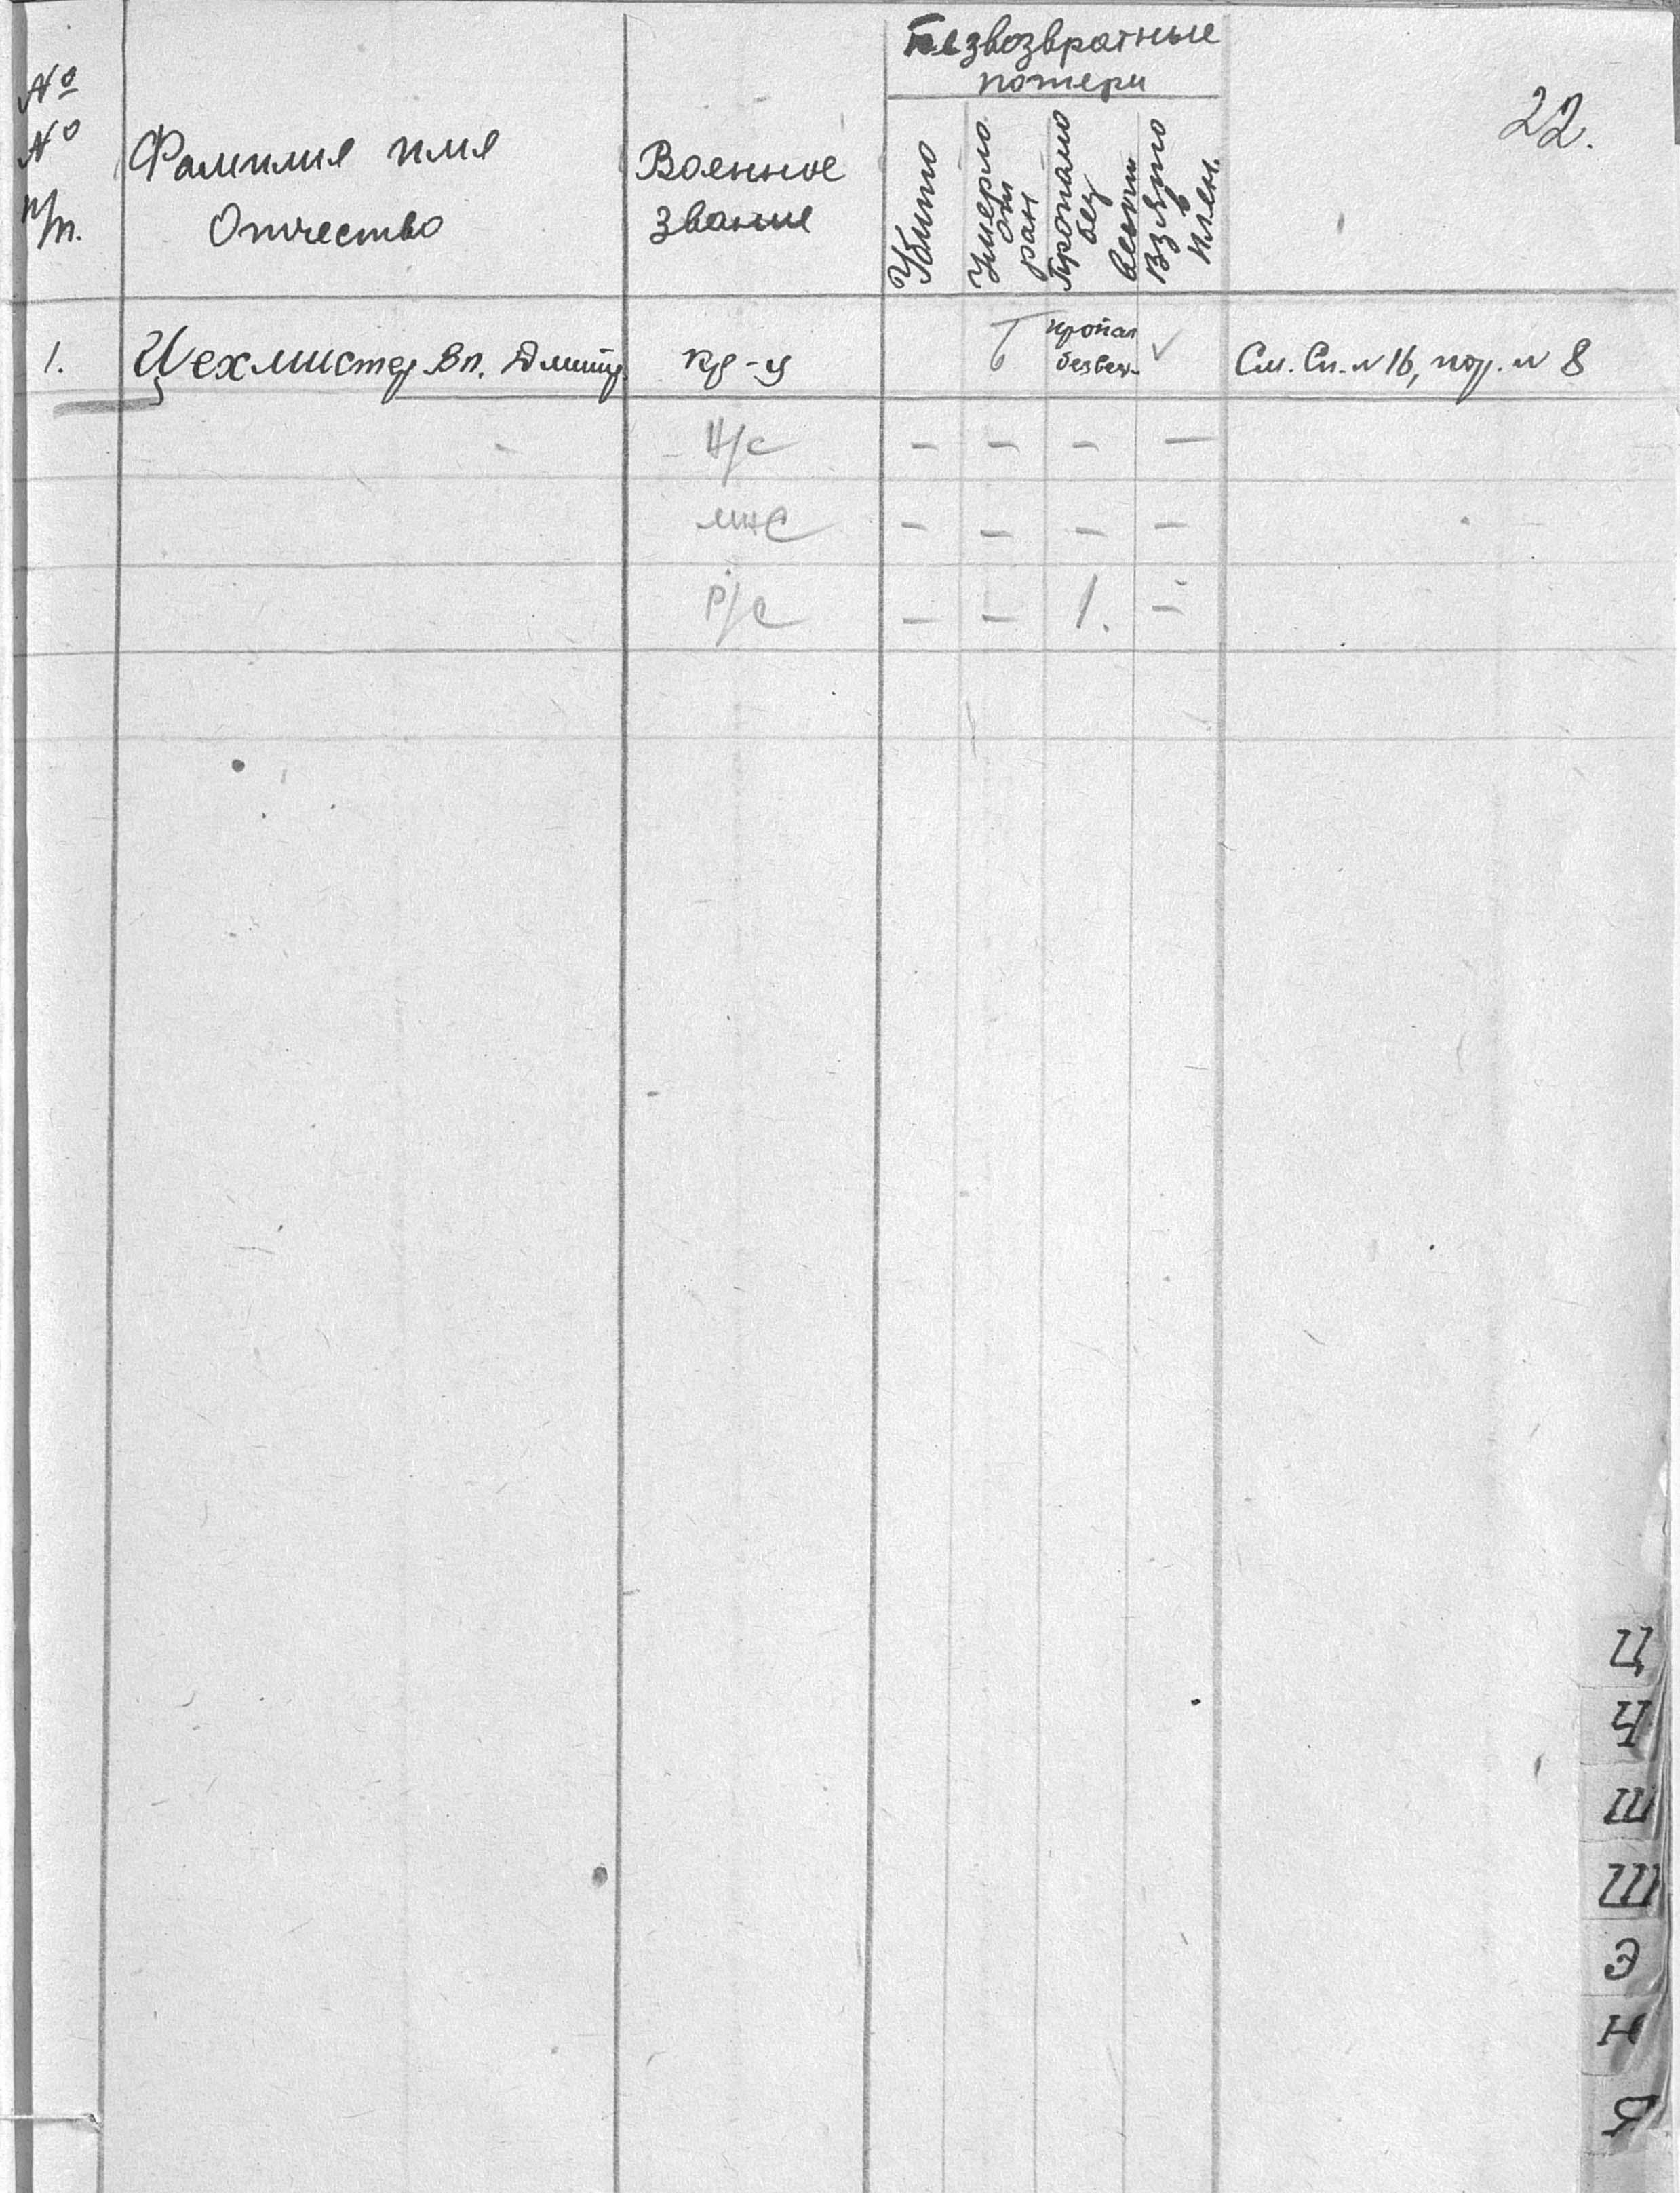 Безвозвратные
потери
22.
№
№
п/п.
Фамилия имя
Отчество
Военное
звание
Убито
Умерло
от
ран
Пропало
без
вести
Взято
в
плен.
1. Цехмистер Вл. Дмитр. кр-ц пропал
без вест. См. Сп. № 16, пор. № 8
Н/с – – – –
мнс – – – –
Р/с – – 1. –
Ц
Ч
Ш
Щ
Э
Я